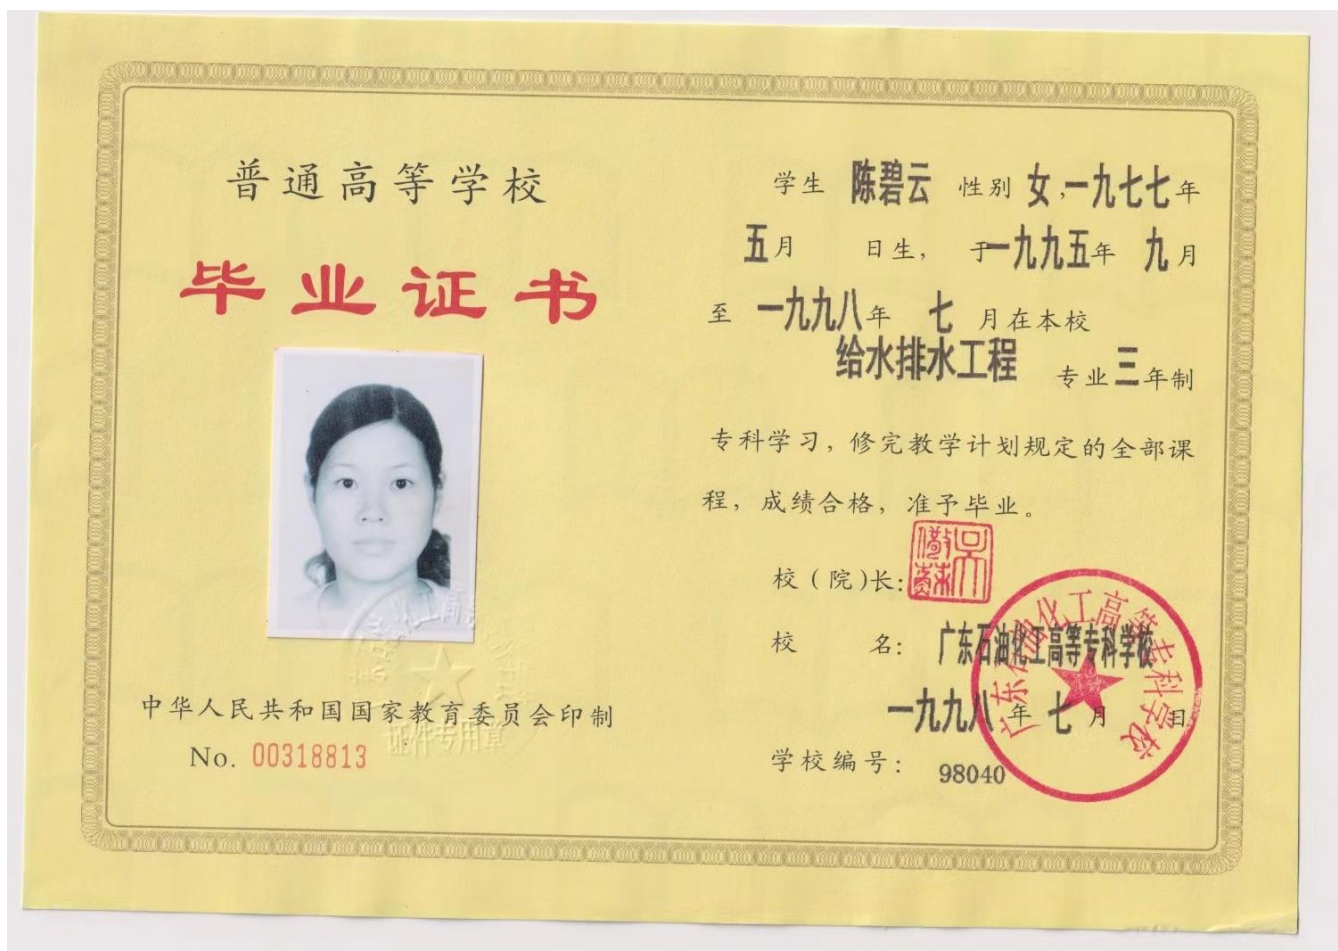 普通高等学校
毕业证书
中华人民共和国国家教育委员会印制
No. 00318813
证件专用章
学生 陈碧云 性别 女,一九七七年
五月 日生, 于一九九五年 九月
至 一九九八年 七 月在本校
给水排水工程 专业三年制
专科学习,修完教学计划规定的全部课
程,成绩合格,准予毕业。
校(院)长:
校 名: 广东石油化工高等专科学校
一九九八 年 七 月 日
学校编号: 98040
广东石油化工高等专科学校